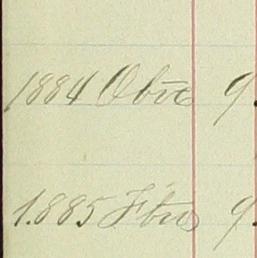 1884 Obre 9.
1885 Fbro 9.